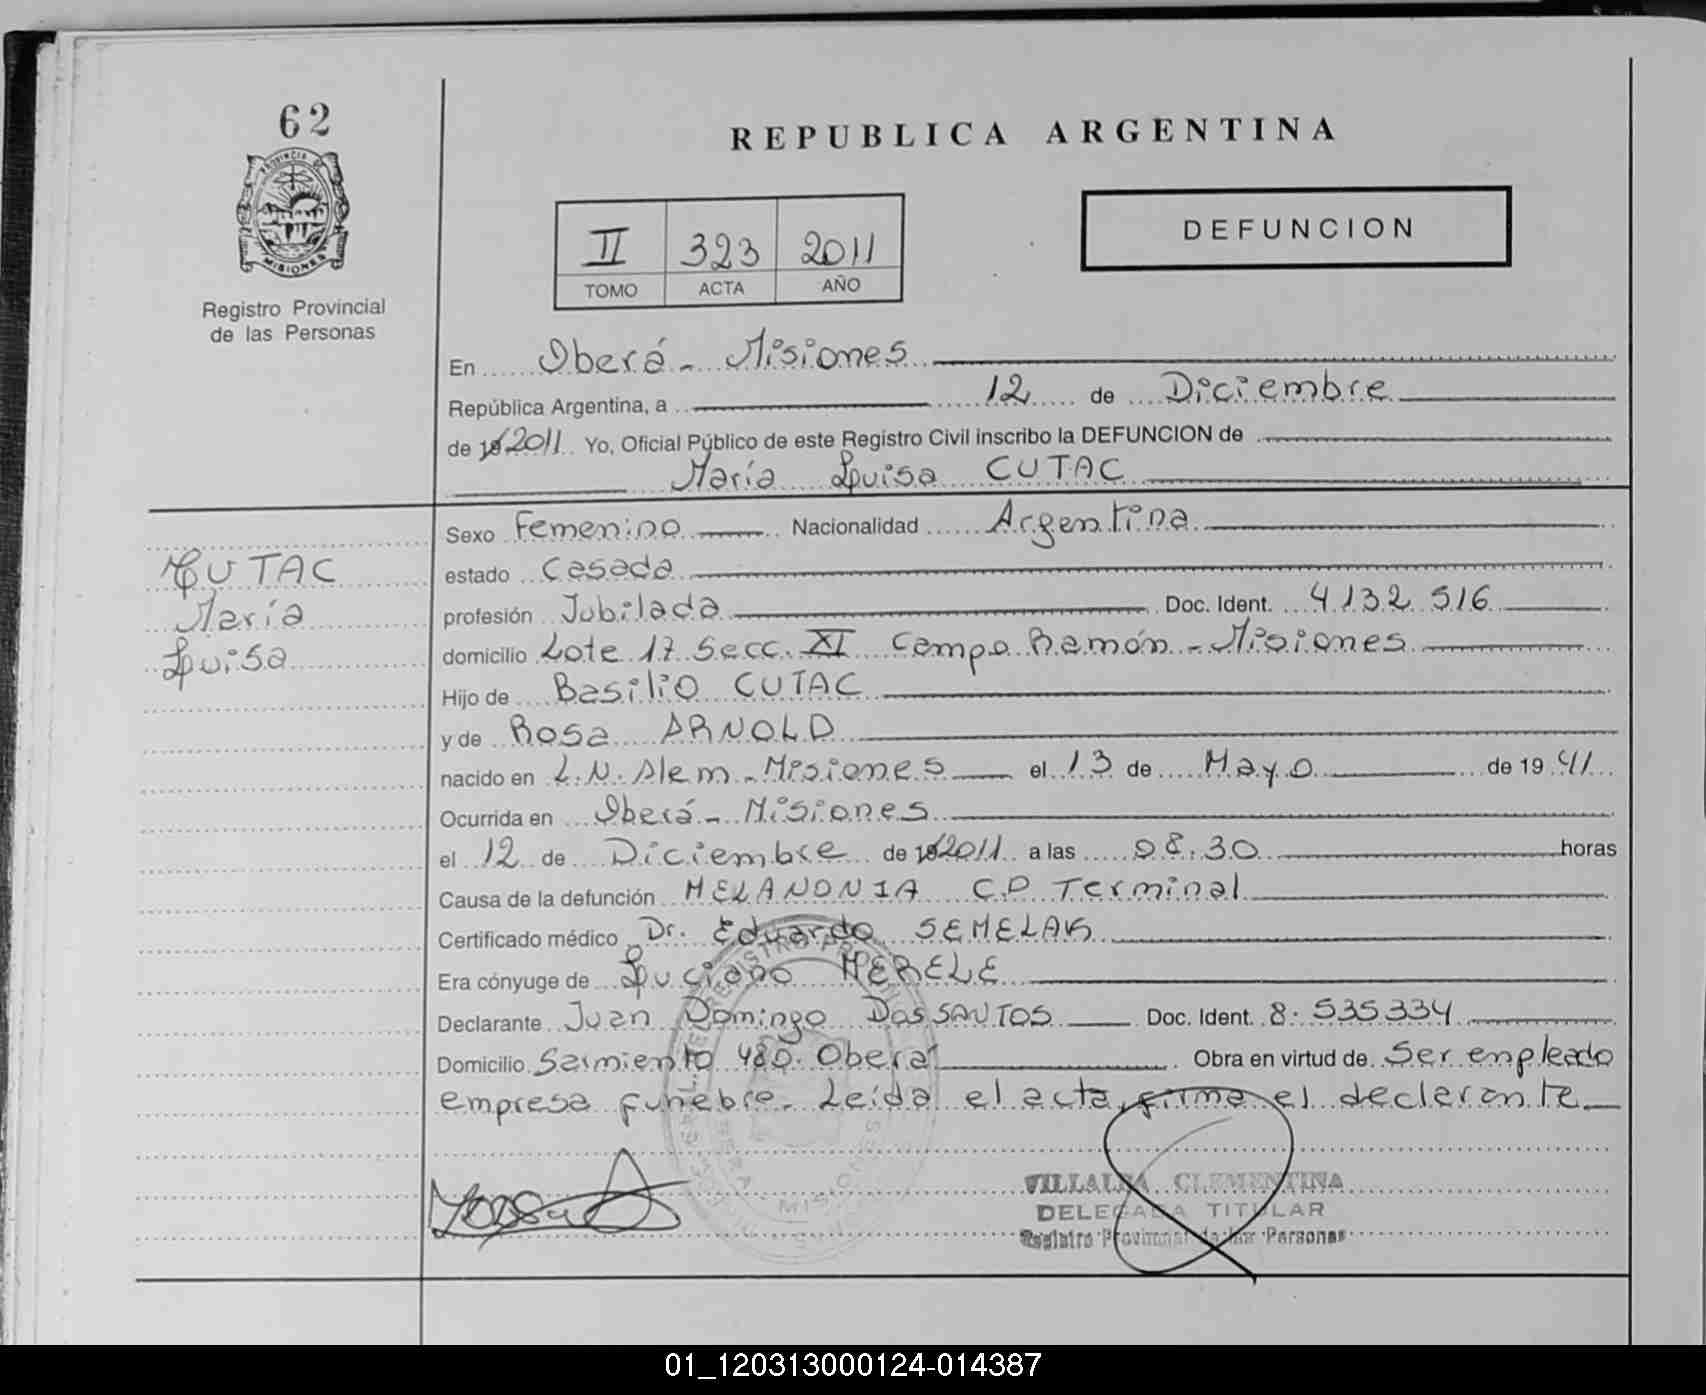 62
REPUBLICA ARGENTINA
PROVINCIA DE
MISIONES
Registro Provincial
de las Personas
II 323 2011
TOMO ACTA AÑO
DEFUNCION
En Oberá - Misiones
República Argentina, a 12 de Diciembre
de 19 2011 Yo, Oficial Público de este Registro Civil inscribo la DEFUNCION de
María Luisa CUTAC
CUTAC
María
Luisa
Sexo Femenino Nacionalidad Argentina
estado Casada
profesión Jubilada Doc. Ident. 4132 516
domicilio Lote 17 Secc. XI Campo Ramón - Misiones
Hijo de Basilio CUTAC
y de Rosa ARNOLD
nacido en L.N. Alem - Misiones el 13 de Mayo de 19 41
Ocurrida en Oberá - Misiones
el 12 de Diciembre de 19 2011 a las 08.30 horas
Causa de la defunción MELANONIA C.P. Terminal
Certificado médico Dr. Eduardo SEMELAK
Era cónyuge de Luciano MERELE
Declarante Juan Domingo DOS SANTOS Doc. Ident. 8.535334
Domicilio Sarmiento 480. Oberá Obra en virtud de Ser empleado
empresa funebre. Leída el acta, firma el declarante
VILLALBA CLEMENTINA
DELEGADA TITULAR
Registro Provincial de las Personas
01_120313000124-014387